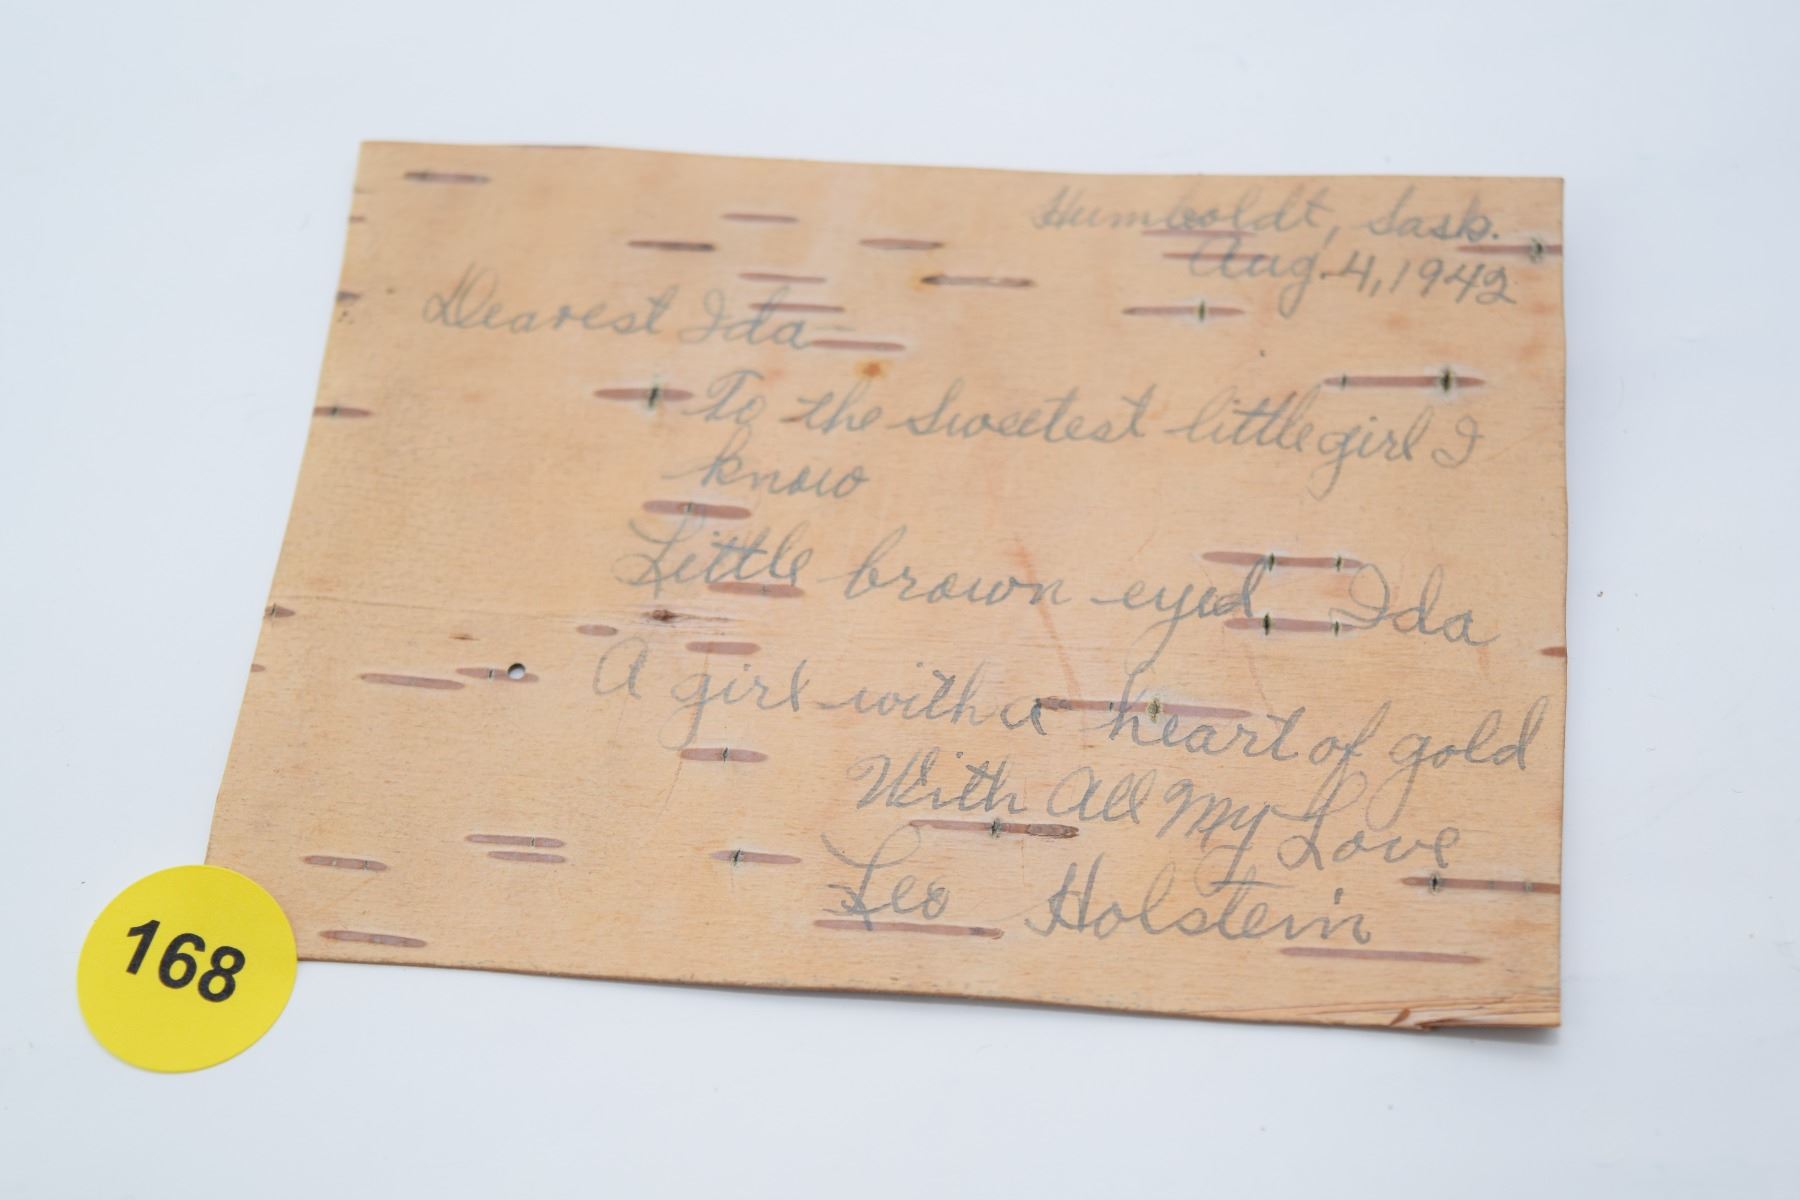 Humboldt, Sask.
Aug. 4, 1942
Dearest Ida
To the Sweetest little girl I
know
Little brown eyed Ida
A girl with a heart of gold
With All My Love
Leo Holstein
168